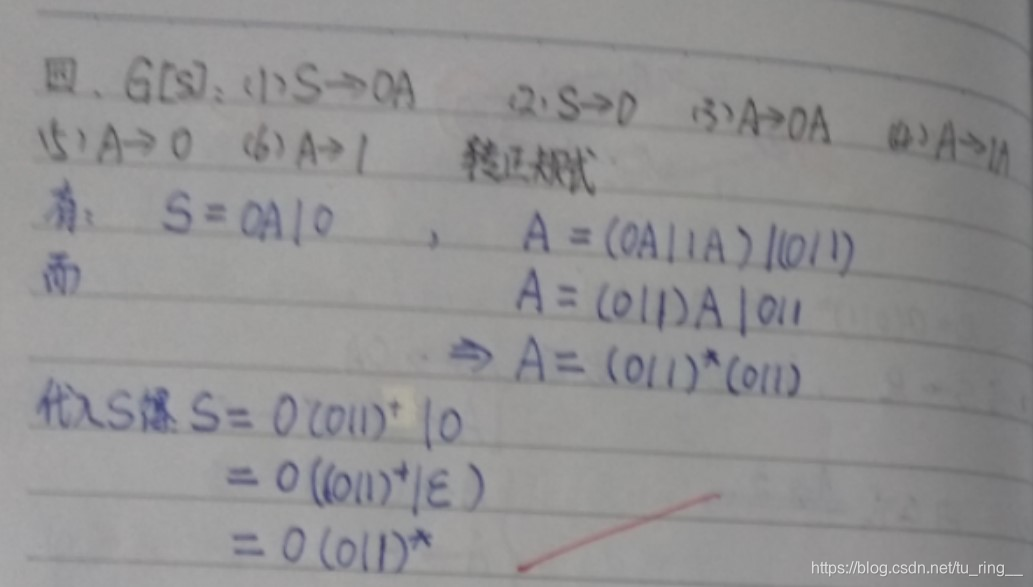 四. G[S]: (1) S→0A (2) S→0 (3) A→0A (4) A→1A
(5) A→0 (6) A→1 转正规式
有: S = 0A|0 , A = (0A|1A)|(0|1)
而 A = (0|1)A|0|1
⇒ A = (0|1)*(0|1)
代入S得 S = 0(0|1)⁺|0
= 0((0|1)⁺|ε)
= 0(0|1)*
https://blog.csdn.net/tu_ring__